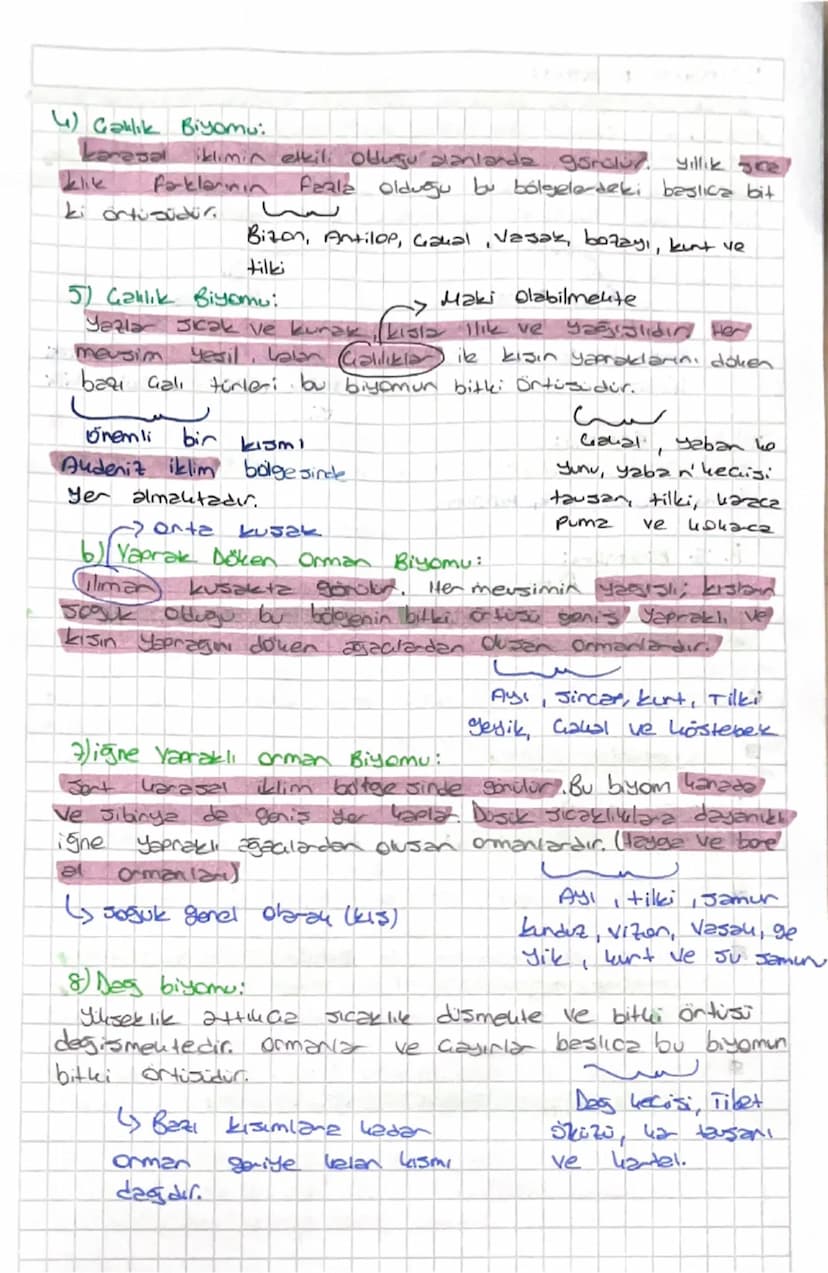 4) Çalılık Biyomu:
karasal iklimin etkili olduğu alanlarda görülür. yıllık sıca
klık farklarının fazla olduğu bu bölgelerdeki başlıca bit
ki örtüsüdür.
Bizon, Antilop, Çakal, Vaşak, bozayı, kurt ve
tilki
5) Çalılık Biyomu:
→ Maki olabilmekte
Yazlar sıcak ve kurak, kışlar ılık ve yağışlıdır. Her
mevsim yeşil kalan çalılıklar ile kışın yapraklarını döken
bazı çalı türleri bu biyomun bitki örtüsüdür.
Önemli bir kısmı
Akdeniz iklim bölgesinde
yer almaktadır.
Çakal, yaban ko
yunu, yaban keçisi
tavşan, tilki, karaca
puma ve kokarca
→ orta kuşak
6) Yaprak Döken Orman Biyomu:
ılıman kuşakta görülür. Her mevsimin yağışlı; kışların
soğuk olduğu bu bölgenin bitki örtüsü geniş yapraklı ve
kışın yaprağını döken ağaçlardan oluşan ormanlardır.
Ayı, sincap, kurt, Tilki
geyik, Çakal ve köstebek
7) iğne Yapraklı orman Biyomu:
Sert karasal iklim bölgesinde görülür. Bu biyom kanada
ve sibirya da geniş yer kaplar. Düşük sıcaklıklara dayanıklı
iğne yapraklı ağaçlardan oluşan ormanlardır. (tayga ve bore
al ormanları)
↳ soğuk genel olarak (kış)
Ayı, tilki, samur
kunduz, vizon, Vaşak, ge
yik, kurt ve su samuru
8) Dağ biyomu:
yükseklik arttıkça sıcaklık düşmekte ve bitki örtüsü
değişmektedir. ormanlar ve çayırlar başlıca bu biyomun
bitki örtüsüdür.
↳ Bazı kısımlara kadar
orman geriye kalan kısmı
dağdır.
Dağ keçisi, Tibet
öküzü, kar tavşanı
ve kartal.